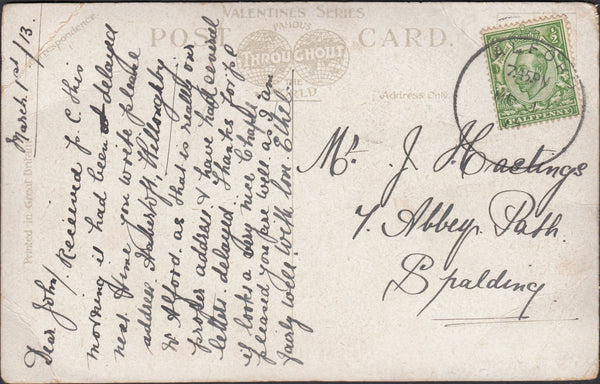 VALENTINES SERIES
FAMOUS
POST CARD.
THROUGHOUT
THE WORLD
Correspondence.
Address Only
Printed in Great Britain
ALFORD
7.45PM
HALFPENNY
March 1st /13.
Dear John/ Received P.C this
morning it had been delayed
next time you write please
address Willoughby
Nr Alford. as that is really our
proper address & have had several
letters delayed Thanks for pc
it looks a very nice Chapel
pleased you are well as I am
fairly well. with love Ethel.
Mr. J. Hastings
7. Abbey Path.
Spalding.